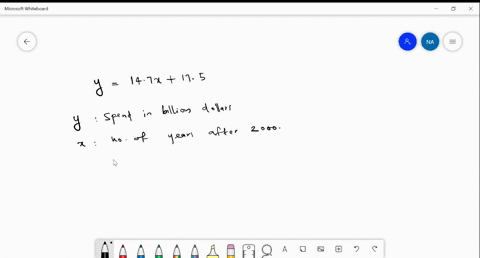 Microsoft Whiteboard
NA
y = 14.7x + 17.5
y : Spent in billion dollars
x : no. of years after 2000.
A